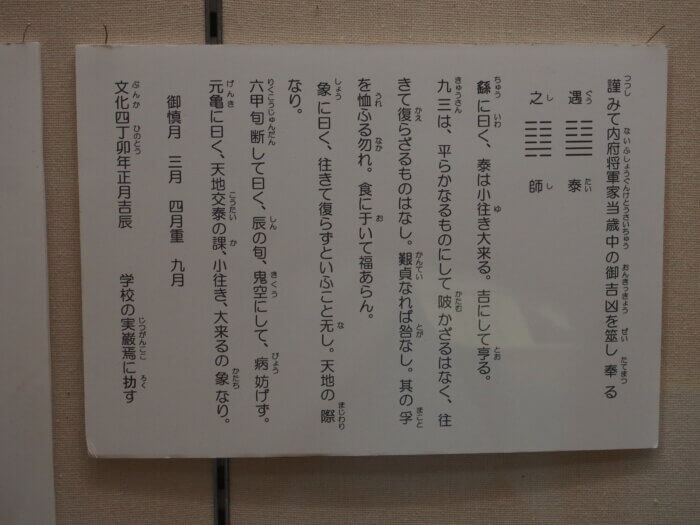 謹みて内府将軍家当歳中の御吉凶を筮し奉る
遇 泰
之 師
繇に曰く、泰は小往き大来る。吉にして亨る。
九三は、平らかなるものにして陂かざるはなく、往
きて復らざるものはなし。艱貞なれば咎なし。其の孚
を恤ふる勿れ。食に于いて福あらん。
象に曰く、往きて復らずといふこと无し。天地の際
なり。
六甲旬断して曰く、辰の旬、鬼空にして、病妨げず。
元亀に曰く、天地交泰の課、小往き、大来るの象なり。
御慎月 三月 四月重 九月
文化四丁卯年正月吉辰 学校の実巌焉に扐す